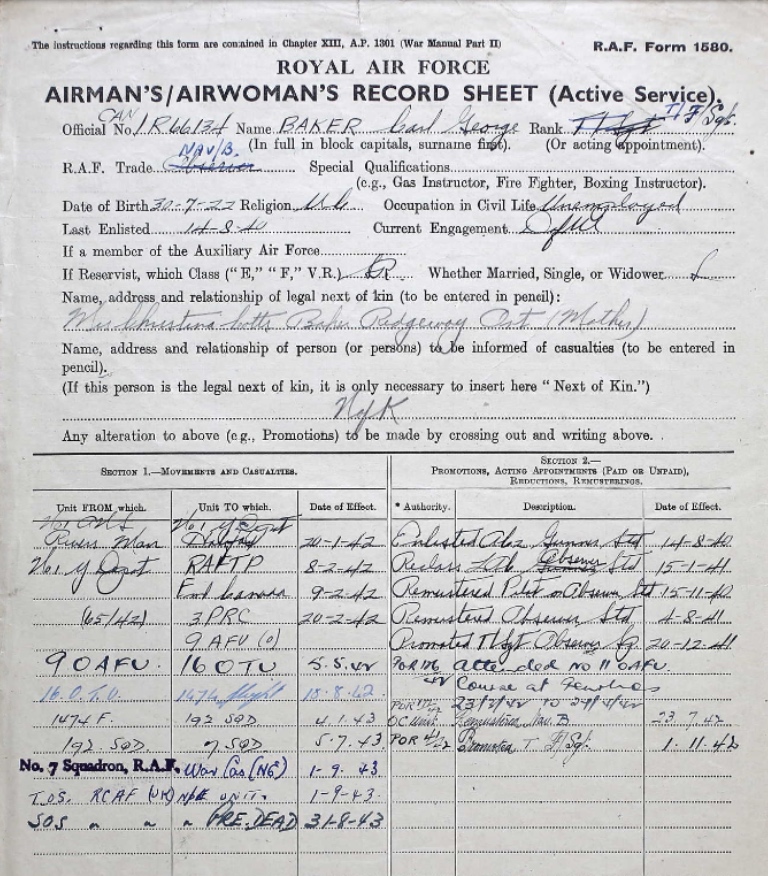 The instructions regarding this form are contained in Chapter XIII, A.P. 1301 (War Manual Part II) R.A.F. Form 1580.
ROYAL AIR FORCE
AIRMAN'S/AIRWOMAN'S RECORD SHEET (Active Service).
CAN
Official No. R66134 Name BAKER Carl George Rank T/Sgt T/F/Sgt.
(In full in block capitals, surname first). (Or acting appointment).
NAV/B.
R.A.F. Trade Observer Special Qualifications
(e.g., Gas Instructor, Fire Fighter, Boxing Instructor).
Date of Birth 30-7-22 Religion U.C. Occupation in Civil Life Unemployed
Last Enlisted 14-8-40 Current Engagement
If a member of the Auxiliary Air Force
If Reservist, which Class ("E," "F," V.R.) Whether Married, Single, or Widower S
Name, address and relationship of legal next of kin (to be entered in pencil):
Mrs Christina Baker Ridgeway Ont (Mother)
Name, address and relationship of person (or persons) to be informed of casualties (to be entered in
pencil).
(If this person is the legal next of kin, it is only necessary to insert here "Next of Kin.")
NofK
Any alteration to above (e.g., Promotions) to be made by crossing out and writing above.
SECTION 1.—MOVEMENTS AND CASUALTIES.
SECTION 2.—
PROMOTIONS, ACTING APPOINTMENTS (PAID OR UNPAID),
REDUCTIONS, REMUSTERINGS.
Unit FROM which. Unit TO which. Date of Effect. * Authority. Description. Date of Effect.
No. 1 ANS No. 1 Y Depot
Rivers Man 20-1-42 Enlisted Gunner Std 14-8-40
No. 1 Y Depot RAFTP 8-2-42 Reclass Observer Std 15-1-41
Emb Canada 9-2-42 Remustered Pilot or Observer Std 15-11-40
(65/42) 3 PRC 20-2-42 Remustered Observer Std 4-8-41
9 AFU (O) Promoted T/Sgt Observer 20-12-41
9 OAFU. 16 OTU 5.5.42 POR attended No 11 OAFU
16.O.T.U. 1474 flight 18.8.42 Course at
1474 F. 192 SQD 4.1.43 Remustered Nav. B 23.7.42
192. SQD 7 SQD 5.7.43 POR Promoted T. F/Sgt. 1.11.42
No. 7 Squadron, R.A.F. War Cas (NE) 1-9. 43
T.O.S. RCAF (UK) N/E UNIT. 1-9-43.
SOS " " " PRE. DEAD 31-8-43